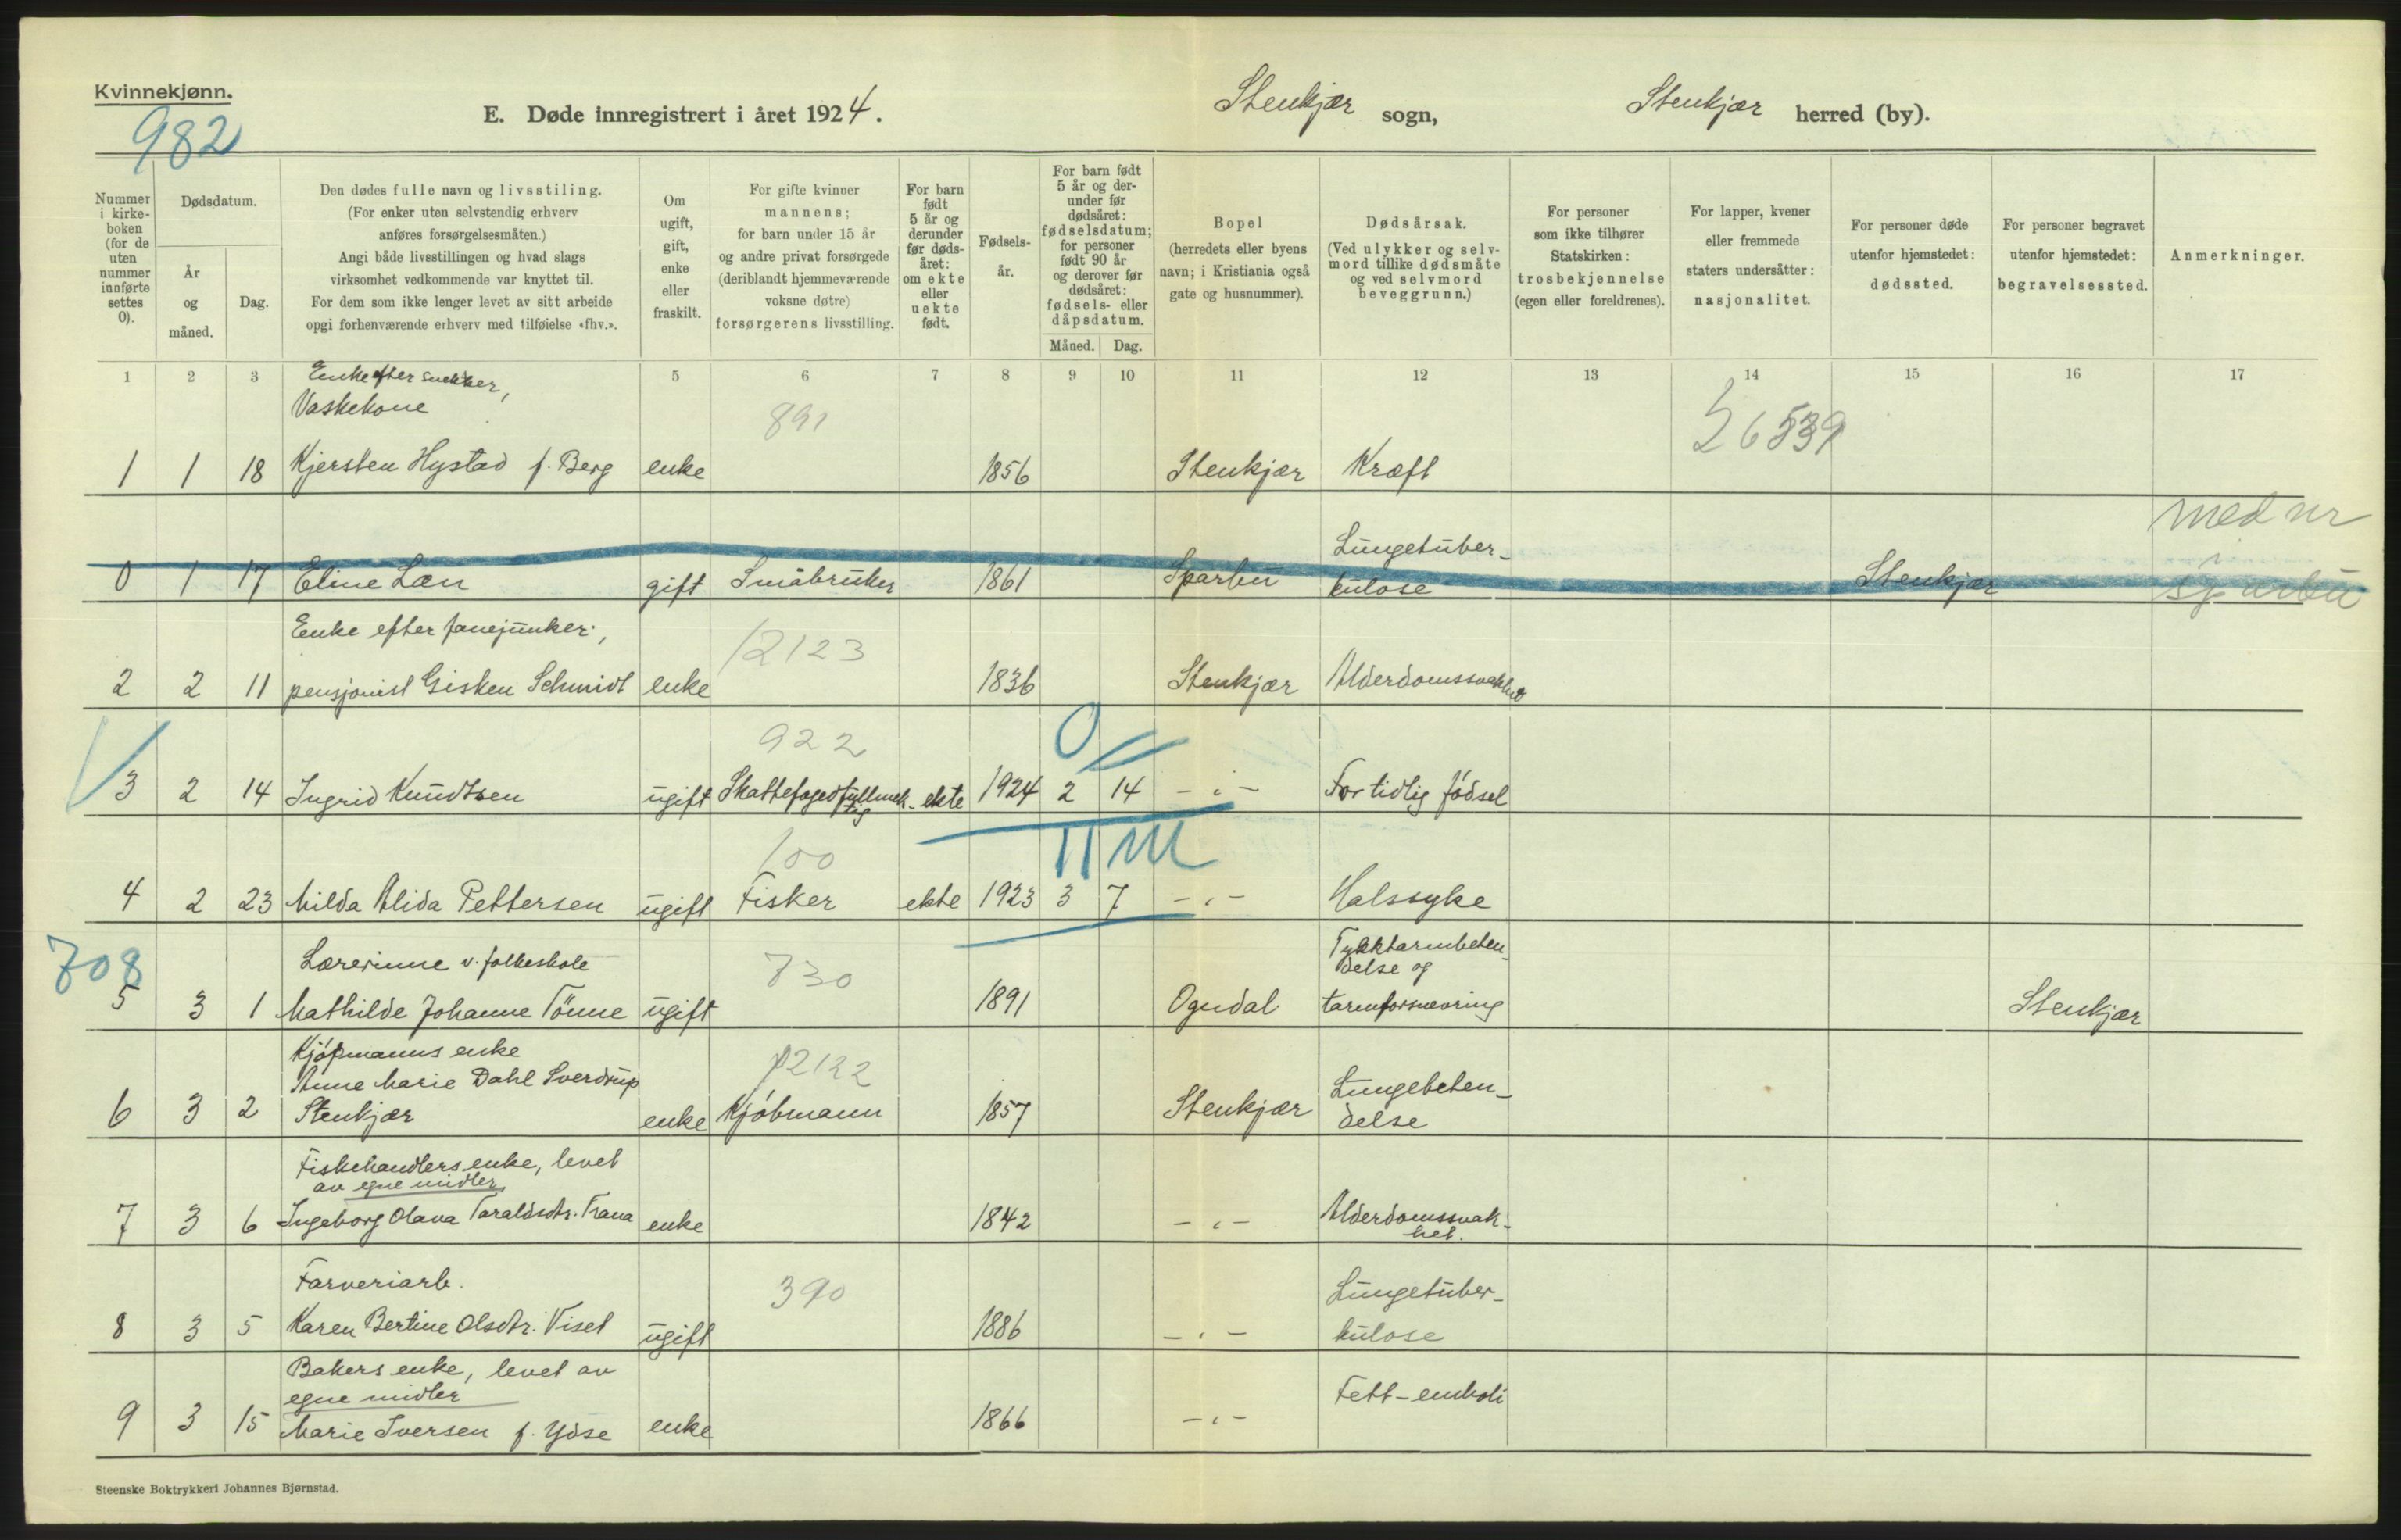 Kvinnekjønn.
982
E. Døde innregistrert i året 1924.
Stenkjær sogn,
Stenkjær herred (by).
Nummer i kirke-boken (for de uten nummer innførte settes 0).
Dødsdatum.
År og måned.
Dag.
Den dødes fulle navn og livsstiling.
(For enker uten selvstendig erhverv
anføres forsørgelsesmåten.)
Angi både livsstillingen og hvad slags
virksomhet vedkommende var knyttet til.
For dem som ikke lenger levet av sitt arbeide
opgi forhenværende erhverv med tilføielse «fhv.».
Om ugift, gift, enke eller fraskilt.
For gifte kvinner
mannens;
for barn under 15 år
og andre privat forsørgede
(deriblandt hjemmeværende
voksne døtre)
forsørgerens livsstilling.
For barn født 5 år og derunder før døds-året: om ekte eller uekte født.
Fødsels-år.
For barn født 5 år og der-under før dødsåret: fødselsdatum; for personer født 90 år og derover før dødsåret: fødsels- eller dåpsdatum.
Måned. Dag.
Bopel
(herredets eller byens
navn; i Kristiania også
gate og husnummer).
Dødsårsak.
(Ved ulykker og selv-
mord tillike dødsmåte
og ved selvmord
beveggrunn.)
For personer
som ikke tilhører
Statskirken:
trosbekjennelse
(egen eller foreldrenes).
For lapper, kvener
eller fremmede
staters undersåtter:
nasjonalitet.
For personer døde
utenfor hjemstedet:
dødssted.
For personer begravet
utenfor hjemstedet:
begravelsessted.
Anmerkninger.
1 2 3 5 6 7 8 9 10 11 12 13 14 15 16 17
Enke efter snekker,
Vaskekone
891
1 1 18 Kjersten Hystad f. Berg enke 1856 Stenkjær Kræft
med nr
Lungetuber-
0 1 17 Eline Læn gift Småbruker 1861 Sparbu kulose Stenkjær Sparbu
Enke efter fanejunker,
12123
2 2 11 pensjonist Gisken Schmidt enke 1836 Stenkjær Alderdomssvakhet
922
0
3 2 14 Ingrid Knudtsen ugift Skattefogedfullmek-tig ekte 1924 2 14 -"- For tidlig födsel
100
11 M
4 2 23 Milda Alida Pettersen ugift Fisker ekte 1923 3 7 -"- Halssyke
708
Lærerinne v. folkeskole
730
Tykktarmbeten-
delse og
5 3 1 Mathilde Johanne Tönne ugift 1891 Ogndal tarmforsnevring Stenkjær
Kjöpmanns enke
Anne Marie Dahl Sverdrup
12122
Lungebeten-
6 3 2 Stenkjær enke Kjöbmann 1857 Stenkjær delse
Fiskehandlers enke, levet
av egne midler
7 3 6 Ingeborg Olava Taraldsdtr. Trana enke 1842 -"- Alderdomssvak-
het.
Farveriarb.
390
Lungetuber-
8 3 5 Karen Bertine Olsdtr. Viset ugift 1886 -"- kulose
Bakers enke, levet av
egne midler
Fett-emboli
9 3 15 Marie Iversen f. Ydse enke 1866 -"-
Steenske Boktrykkeri Johannes Bjørnstad.